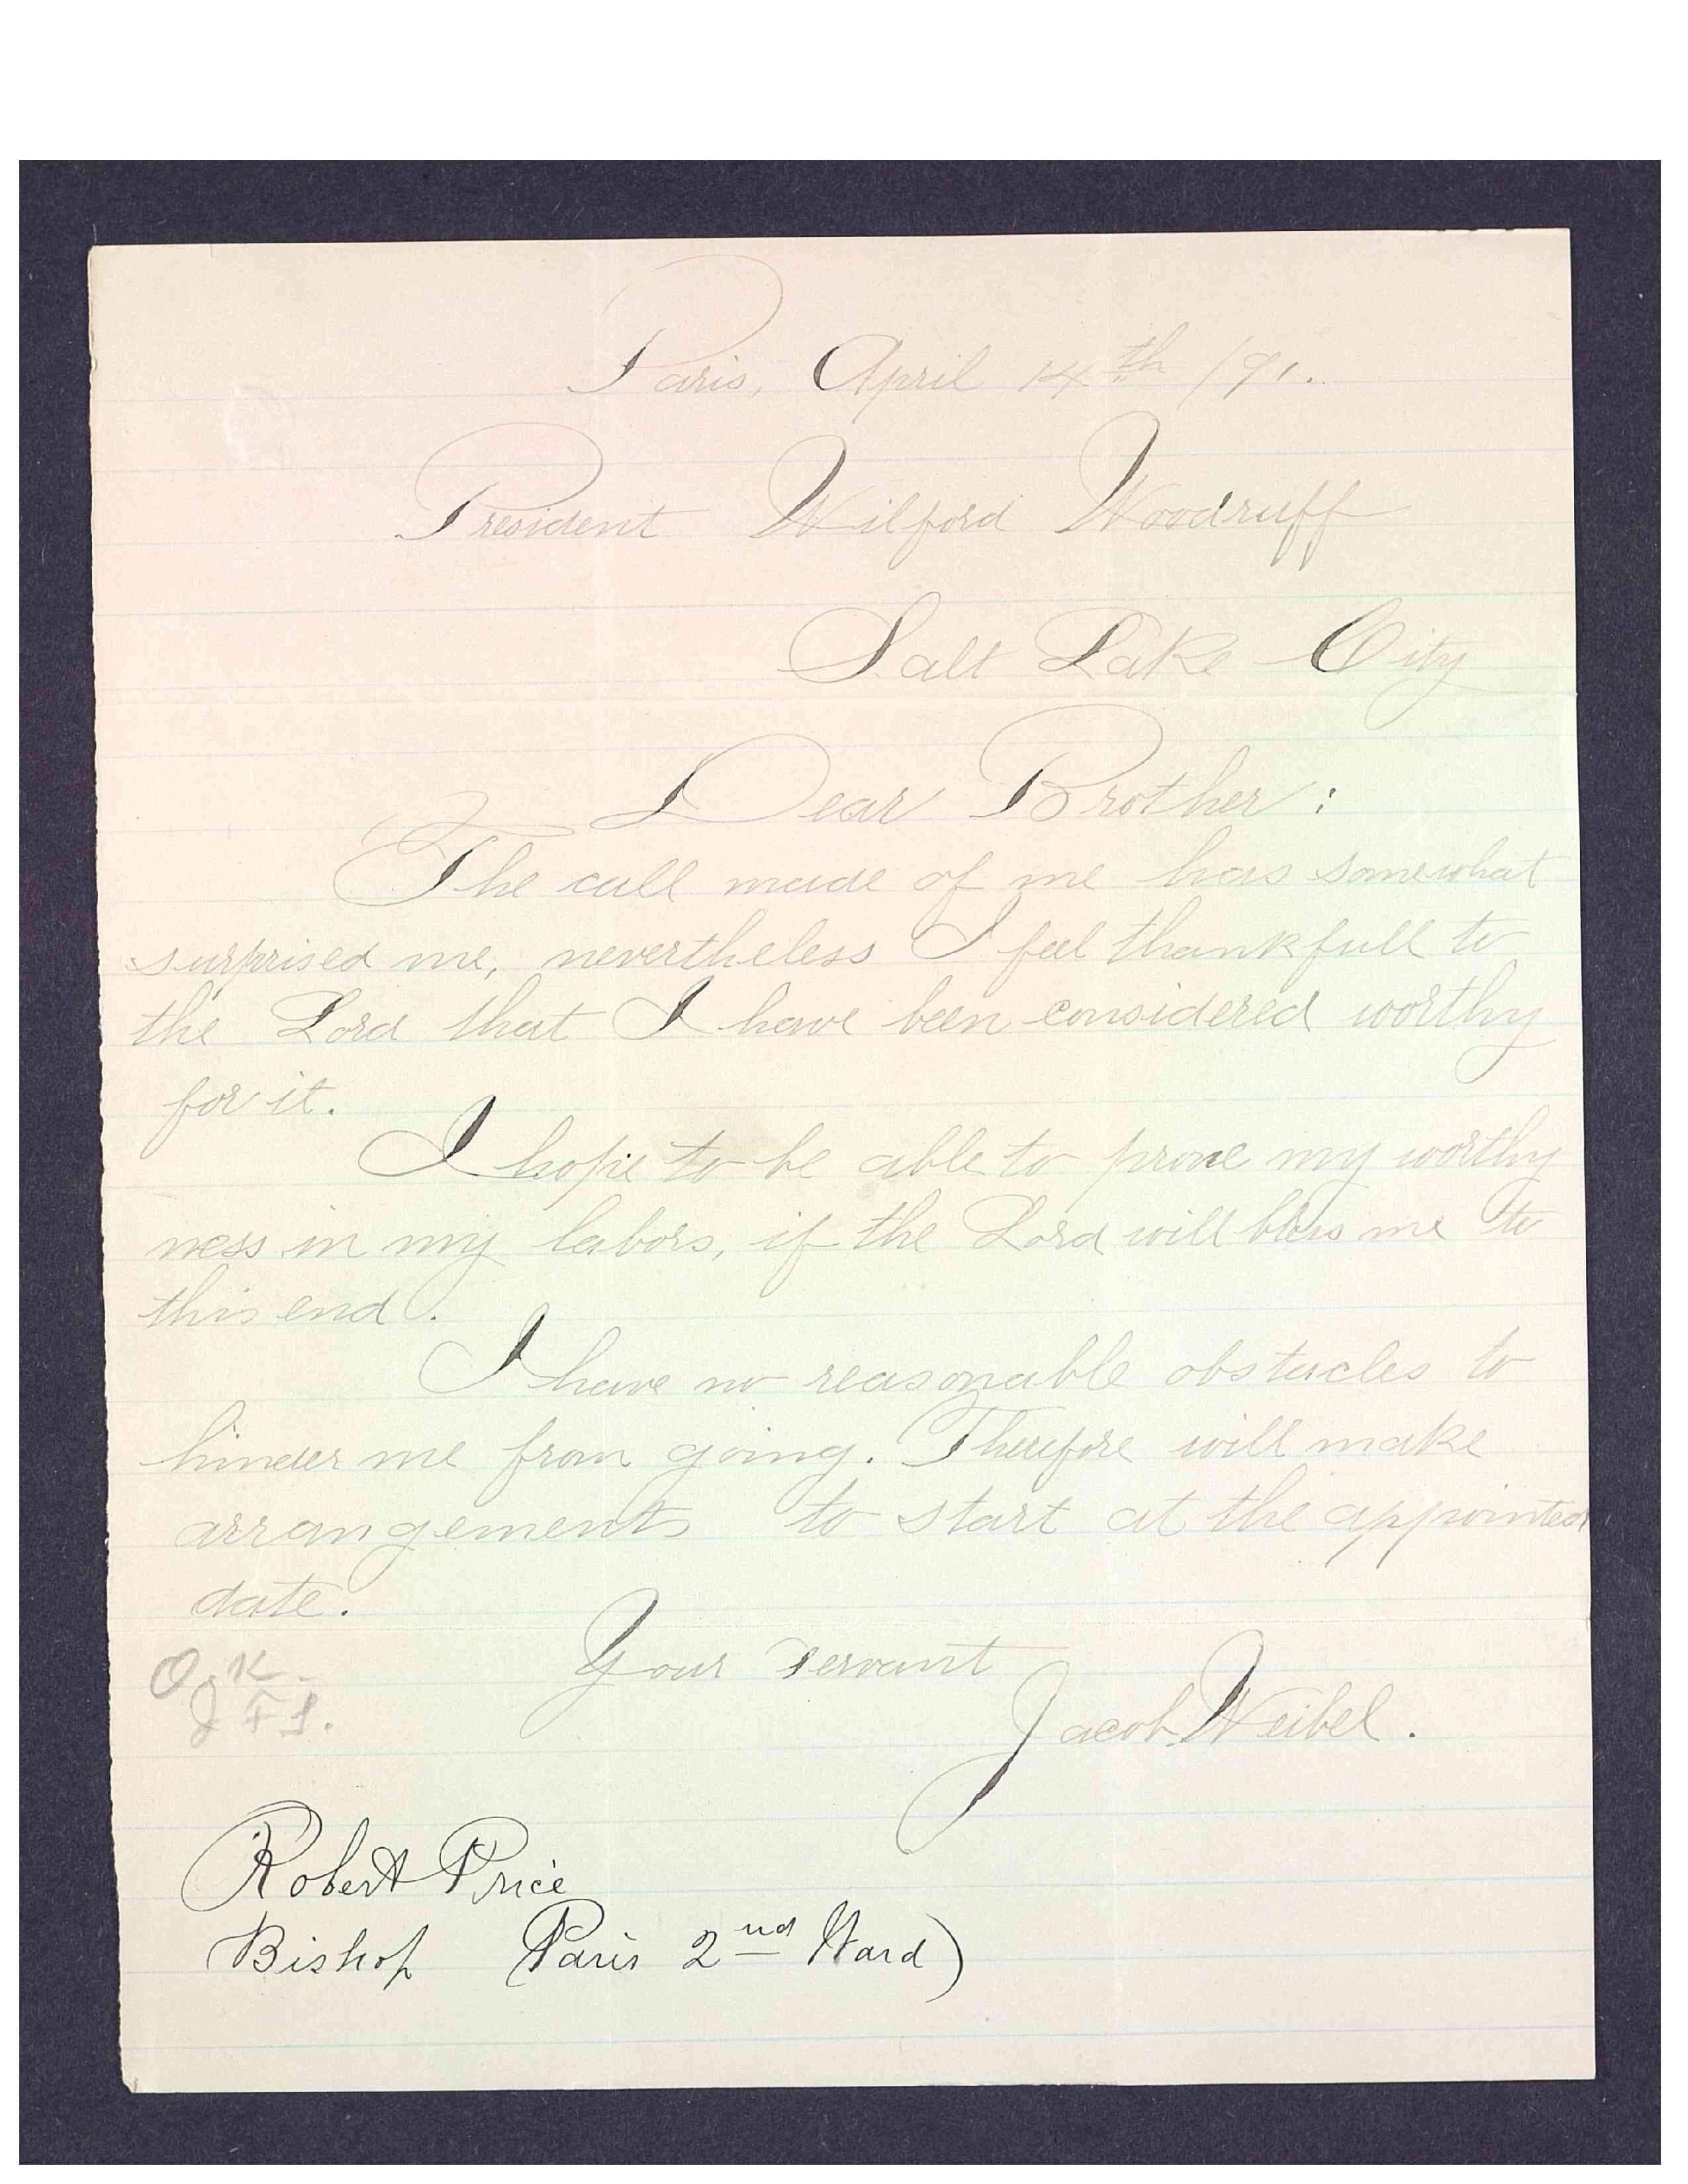 Paris, April 14th /91.
President Wilford Woodruff
Salt Lake City
Dear Brother:
The call made of me has somewhat
surprised me, nevertheless I feel thankfull to
the Lord that I have been considered worthy
for it.
I hope to be able to prove my worthy
ness in my labors, if the Lord will bless me to
this end.
I have no reasonable obstacles to
hinder me from going. Therefore will make
arrangements to start at the appointed
date.
Your servant
Jacob Weibel.
O.K.
J F S.
Robert Price
Bishop (Paris 2nd Ward)